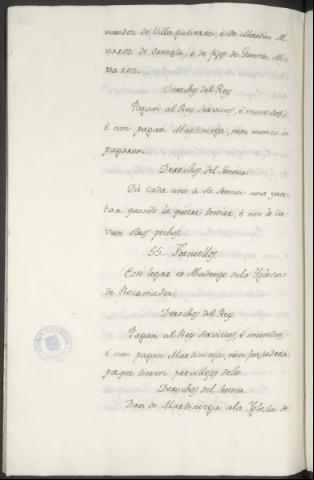 nandez de Villa gutierre, é de Martin Al
varez de Orvaneja, é de fijos de Gomez Al
varez.
Derechos del Rey
Pagan al Rey servicios, é monedas,
é non pagan Martiniega, nin nunca la
pagaron.
Derechos del Sennor
Dá cada uno á su Sennor una yan-
tar quando la quiere tomar, é non le da-
van otros pechos.
55 Forniellos
Este logar es Abadengo de la Yglesia
de Rocamador.
Derechos del Rey
Pagan al Rey servicios, é monedas,
é non pagan Martiniega, nin fonsadera
porque tienen previllejo dello
Derechos del Sennor
Dan de Martiniega a la Yglesia de